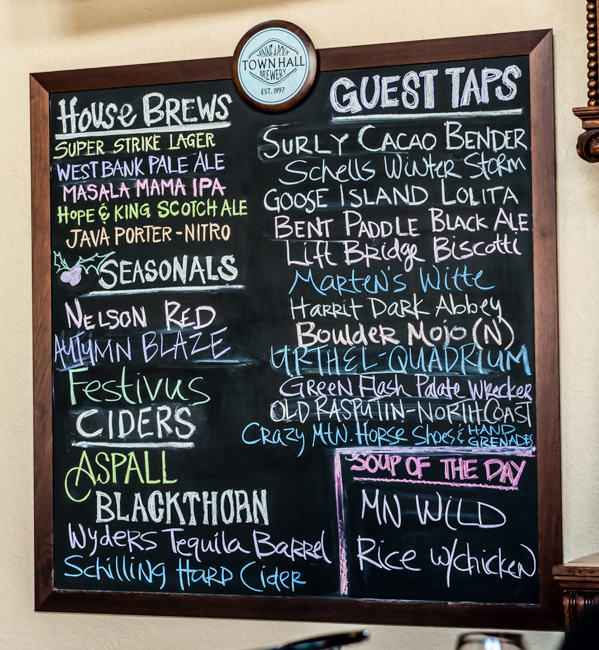 MINNEAPOLIS
TOWN HALL
BREWERY
EST. 1997
HOUSE BREWS
SUPER STRIKE LAGER
WEST BANK PALE ALE
MASALA MAMA IPA
HOPE & KING SCOTCH ALE
JAVA PORTER-NITRO
SEASONALS
NELSON RED
AUTUMN BLAZE
Festivus
CIDERS
ASPALL
BLACKTHORN
Wyders Tequila Barrel
Schilling Hard Cider
GUEST TAPS
SURLY CACAO BENDER
Schells Winter Storm
GOOSE ISLAND LOLITA
BENT PADDLE BLACK ALE
Lift Bridge Biscotti
Marten's Witte
Harrit Dark Abbey
Boulder Mojo (N)
URTHEL-QUADRIUM
Green Flash Palate Wrecker
OLD RASPUTIN-NORTH COAST
Crazy Mtn. Horse Shoes & HAND GRENADES
SOUP OF THE DAY
MN WILD
Rice w/chicken